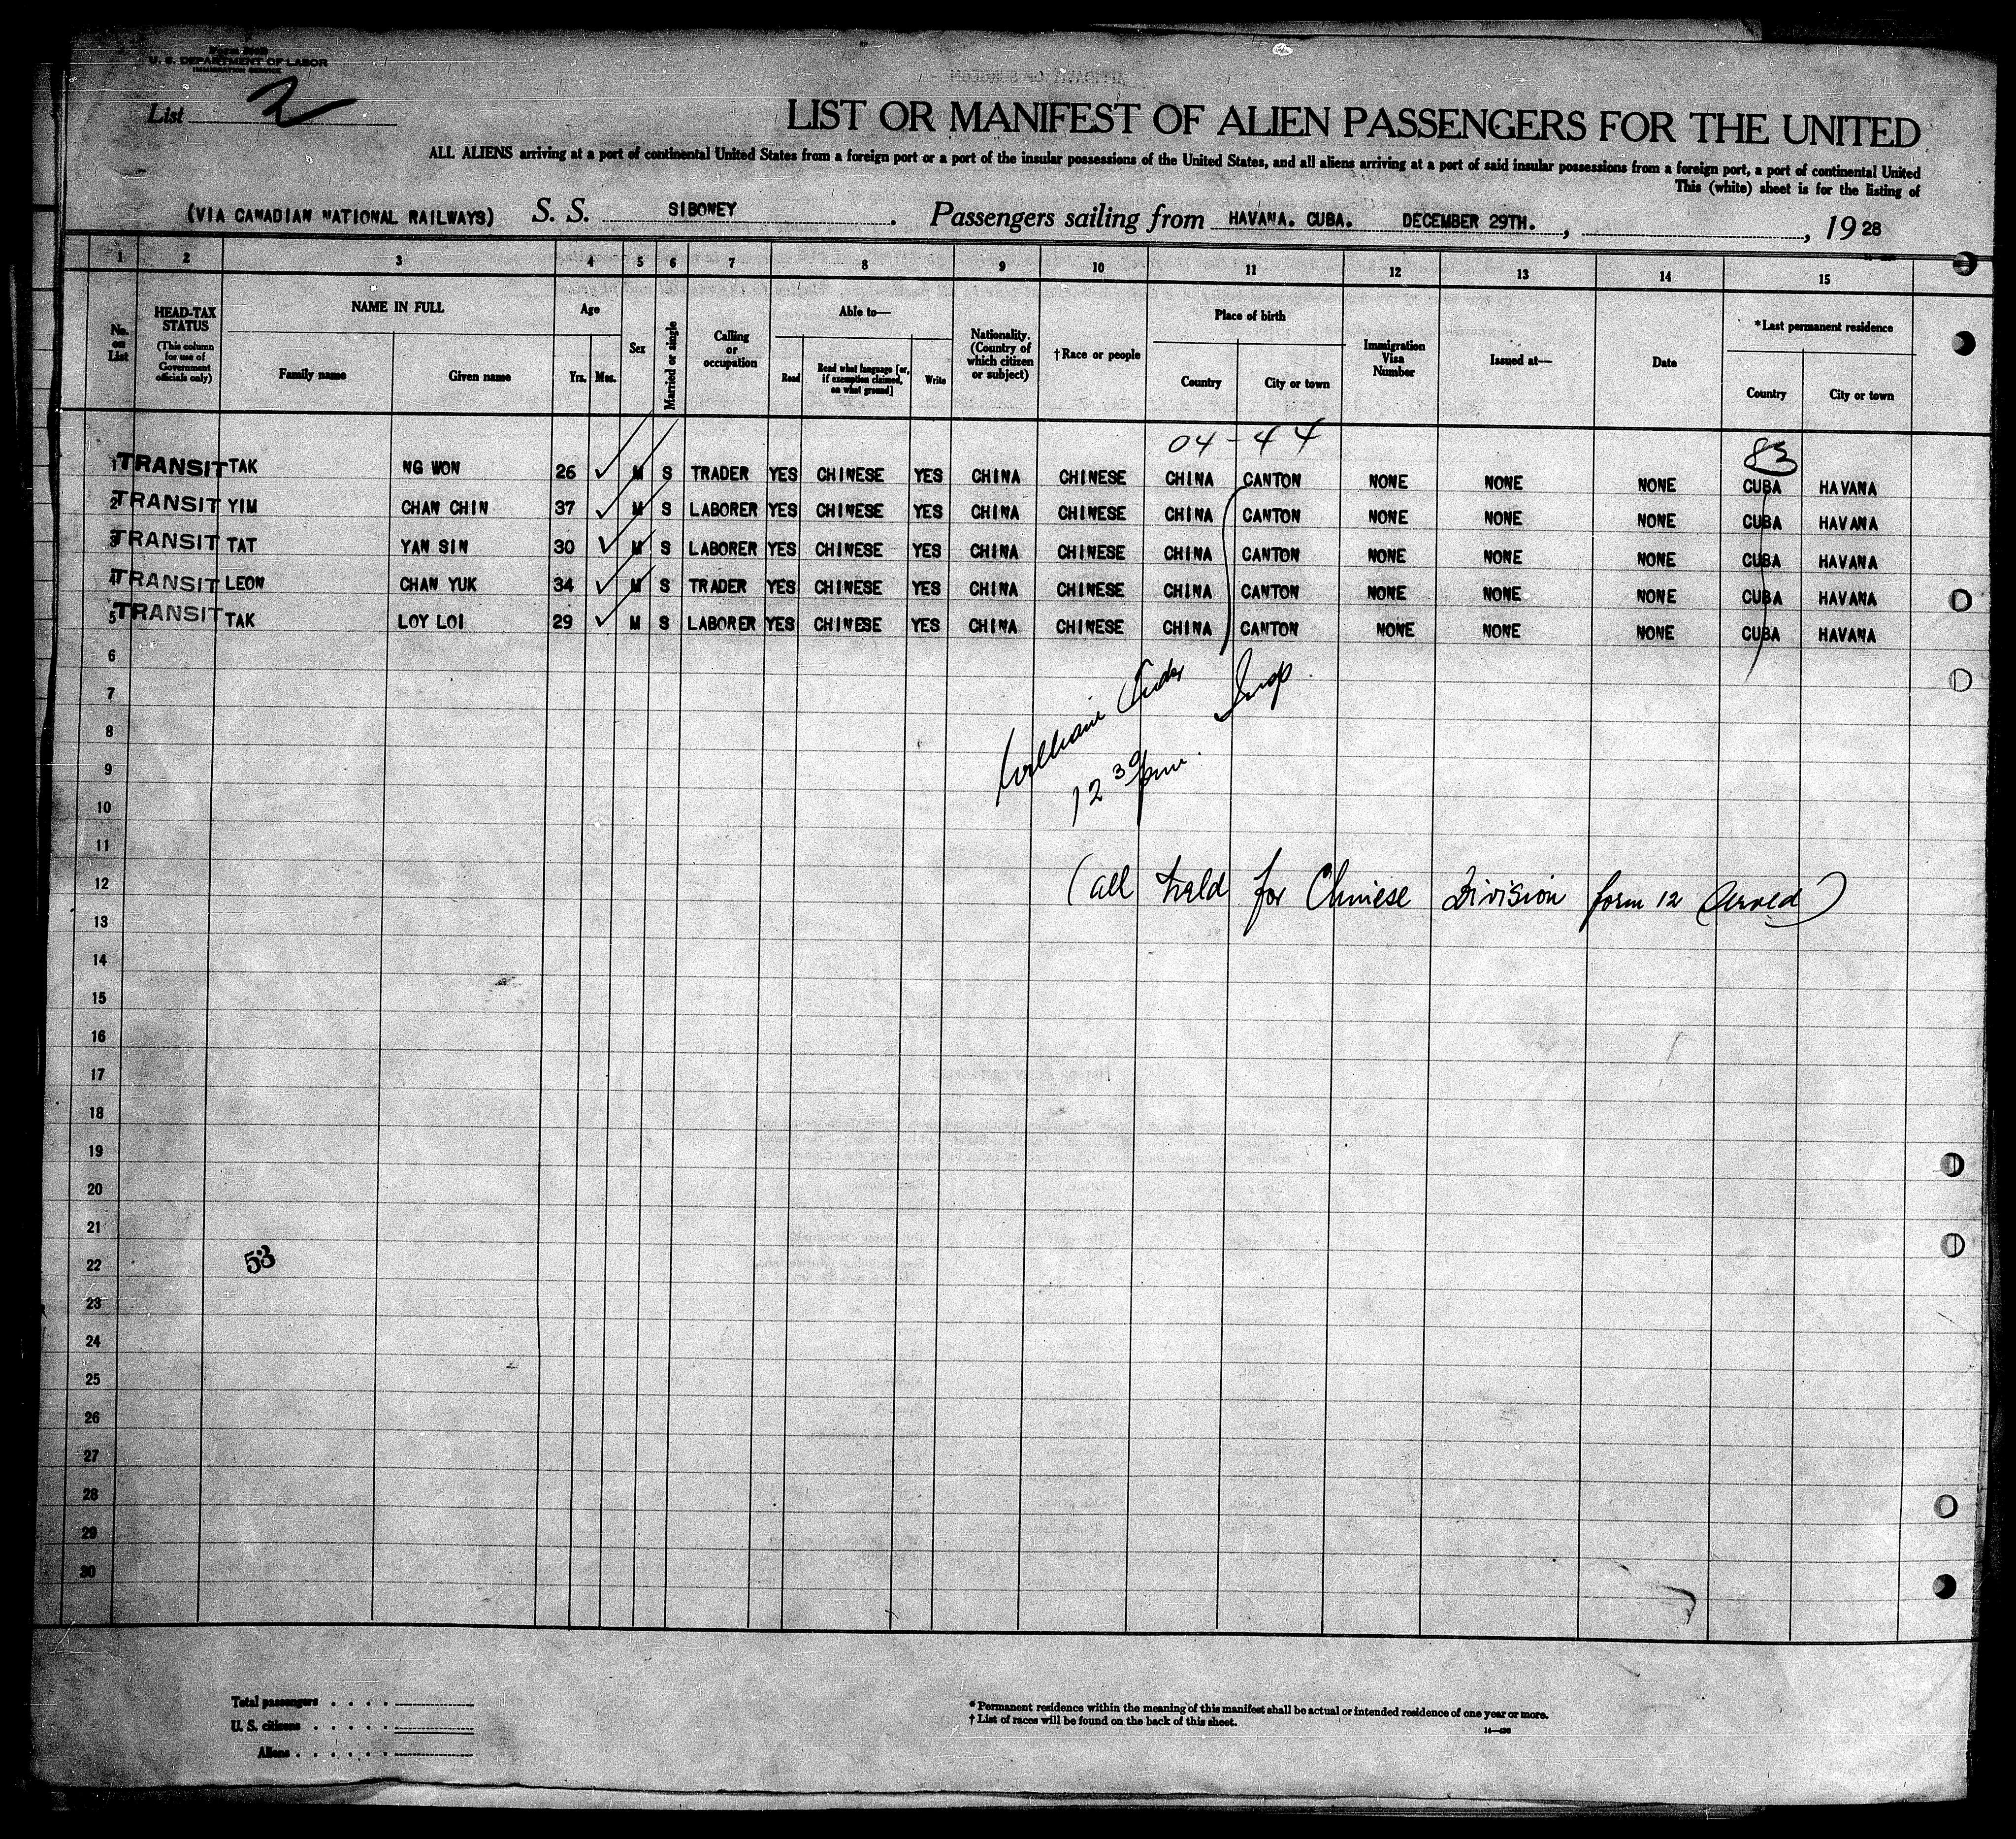 U. S. DEPARTMENT OF LABOR
IMMIGRATION SERVICE
List 2
LIST OR MANIFEST OF ALIEN PASSENGERS FOR THE UNITED
ALL ALIENS arriving at a port of continental United States from a foreign port or a port of the insular possessions of the United States, and all aliens arriving at a port of said insular possessions from a foreign port, a port of continental United
This (white) sheet is for the listing of
(VIA CANADIAN NATIONAL RAILWAYS) S. S. SIBONEY. Passengers sailing from HAVANA. CUBA. DECEMBER 29TH., , 19 28
1 2 3 4 5 6 7 8 9 10 11 12 13 14 15
No. on List
HEAD-TAX STATUS (This column for use of Government officials only)
NAME IN FULL
Family name Given name
Age
Yrs. Mos.
Sex
Married or single
Calling or occupation
Able to—
Read Read what language [or, if exemption claimed, on what ground] Write
Nationality. (Country of which citizen or subject)
†Race or people
Place of birth
Country City or town
Immigration Visa Number
Issued at—
Date
*Last permanent residence
Country City or town
04-44 83
1 TRANSIT TAK NG WON 26 M S TRADER YES CHINESE YES CHINA CHINESE CHINA CANTON NONE NONE NONE CUBA HAVANA
2 TRANSIT YIM CHAN CHIN 37 M S LABORER YES CHINESE YES CHINA CHINESE CHINA CANTON NONE NONE NONE CUBA HAVANA
3 TRANSIT TAT YAN SIN 30 M S LABORER YES CHINESE YES CHINA CHINESE CHINA CANTON NONE NONE NONE CUBA HAVANA
4 TRANSIT LEON CHAN YUK 34 M S TRADER YES CHINESE YES CHINA CHINESE CHINA CANTON NONE NONE NONE CUBA HAVANA
5 TRANSIT TAK LOY LOI 29 M S LABORER YES CHINESE YES CHINA CHINESE CHINA CANTON NONE NONE NONE CUBA HAVANA
6
7
William Insp.
8
9
12 30 pm.
10
11
12
(all held for Chinese Division form 12 served)
13
14
15
16
17
18
19
20
21
22
53
23
24
25
26
27
28
29
30
Total passengers
U. S. citizens
Aliens
* Permanent residence within the meaning of this manifest shall be actual or intended residence of one year or more.
† List of races will be found on the back of this sheet.